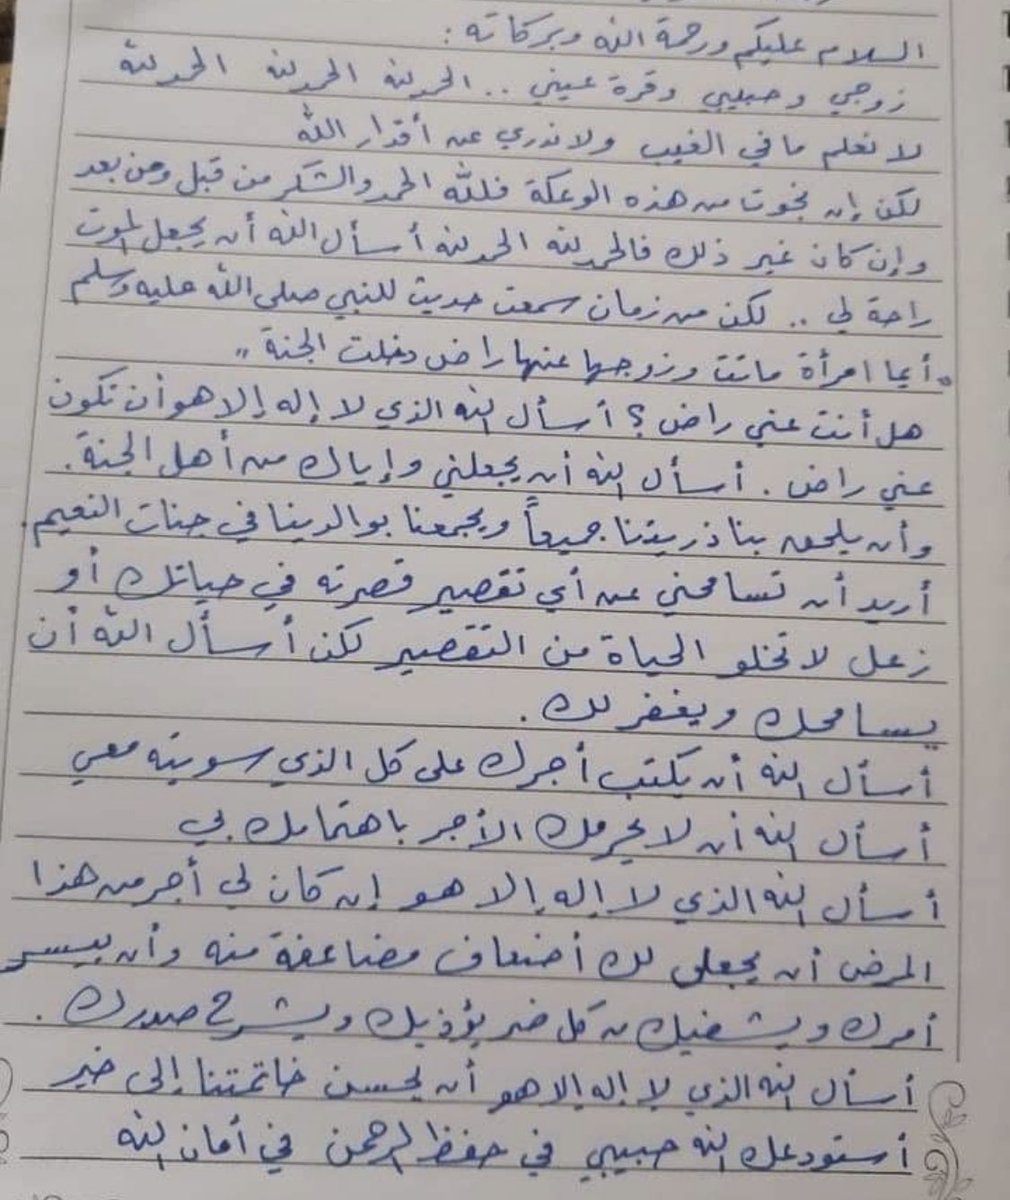 السلام عليكم ورحمة الله وبركاته :
زوجي وحبيبي وقرة عيني .. الحمدلله الحمدلله الحمدلله
لا نعلم ما في الغيب ولا ندري عن أقدار الله
لكن إن نجوت من هذه الوعكة فلله الحمد والشكر من قبل ومن بعد
وإن كان غير ذلك فالحمدلله الحمدلله أسأل الله أن يجعل الموت
راحة لي .. لكن من زمان سمعت حديث للنبي صلى الله عليه وسلم
"أيما امرأة ماتت وزوجها عنها راض دخلت الجنة"
هل أنت عني راض؟ أسأل الله الذي لا إله إلا هو أن تكون
عني راض . أسأل الله أن يجعلني وإياك من أهل الجنة .
وأن يلحق بنا ذريتنا جميعاً ويجمعنا بوالدينا في جنات النعيم .
أريد أن تسامحني عن أي تقصير قصرته في حياتك أو
زعل لا تخلو الحياة من التقصير لكن أسأل الله أن
يسامحك ويغفر لك .
أسأل الله أن يكتب أجرك على كل الذي سويته معي
أسأل الله أن لا يحرمك الأجر باهتمامك بي
أسأل الله الذي لا إله إلا هو إن كان لي أجر من هذا
المرض أن يجعل لك أضعاف مضاعفة منه وأن ييسر
أمرك ويشفيك من كل ضر يؤذيك ويشرح صدرك .
أسأل الله الذي لا إله إلا هو أن يحسن خاتمتنا إلى خير
أستودعك الله حبيبي في حفظ الرحمن في أمان الله